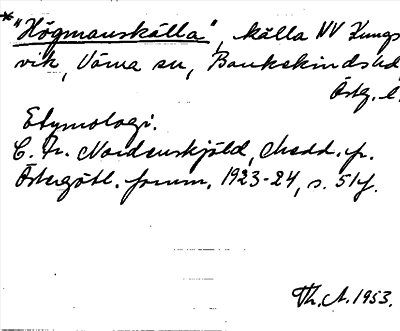 *"Högmanskälla", källa NV Kungs
vik, Vårna sn, Bankekinds hd,
Östg. l.
Etymologi.
C. Fr. Nordenskjöld, Medd. fr.
Östergötl. fornm. 1923-24, s. 51f.
Th. A. 1953.